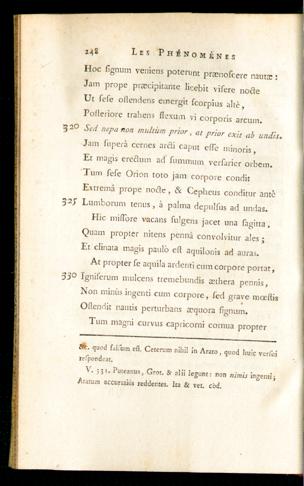 248 LES PHÉNOMÉNES
Hoc signum veniens poterunt prænoscere nautæ:
Jam prope præcipitante licebit visere nocte
Ut sese ostendens emergit scorpius altè,
Posteriore trahens flexum vi corporis arcum.
320 Sed nepa non multùm prior, at prior exit ab undis.
Jam superà cernes arcti caput esse minoris,
Et magis erectum ad summum versarier orbem.
Tum sese Orion toto jam corpore condit
Extremâ prope nocte, & Cepheus conditur antè
325 Lumborum tenus, à palma depulsus ad undas.
Hic missore vacans fulgens jacet una sagitta,
Quam propter nitens pennâ convolvitur ales;
Et clinata magis paulò est aquilonis ad auras.
At propter se aquila ardenti cum corpore portat,
330 Igniferum mulcens tremebundis æthera pennis,
Non minùs ingenti cum corpore, sed grave mœstis
Ostendit nautis perturbans æquora signum.
Tum magni curvus capricorni cornua propter
&c. quod falsum est. Ceterum nihil in Arato, quod huic versui
respondeat.
V. 331. Puteanus, Grot. & alii legunt: non nimis ingenti;
Aratum accuratiùs reddentes. Ita & vet. cod.